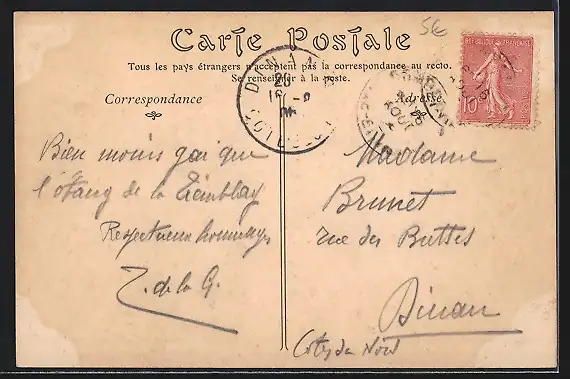 5€
Carte Postale
Tous les pays étrangers n'acceptent pas la correspondance au recto.
Se renseigner à la poste.
Correspondance
Adresse
REPUBLIQUE FRANÇAISE
10
DINAN
COTES DU
Bien moins gai que
l'étang de la Tremblay
Respectueux hommages
Z. de la G.
Madame
Brunet
rue des Buttes
Dinan
Côtes du Nord